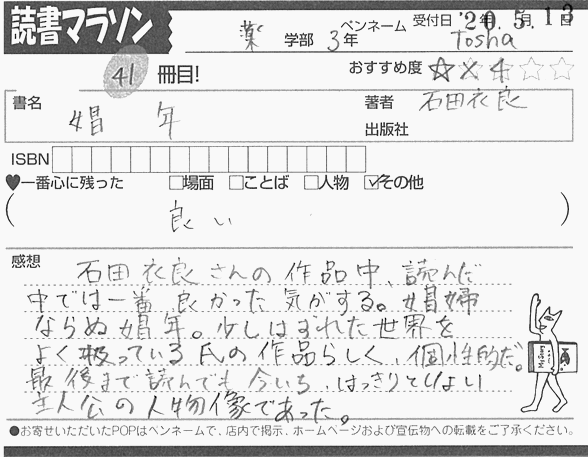 読書マラソン
薬 学部 3年 ペンネーム Tosha 受付日 '20年5月13日
41 冊目! おすすめ度 ☆☆☆☆☆
書名 娼年 著者 石田衣良
出版社
ISBN
♥一番心に残った □場面 □ことば □人物 ☑その他
( 良い )
感想 石田衣良さんの作品中、読んだ
中では一番良かった気がする。娼婦
ならぬ娼年。少しはずれた世界を
よく扱っている氏の作品らしく、個性的だ。
最後まで読んでも今いち、はっきりとしない
主人公の人物像であった。
●お寄せいただいたPOPはペンネームで、店内で掲示、ホームページおよび宣伝物への転載をご了承ください。